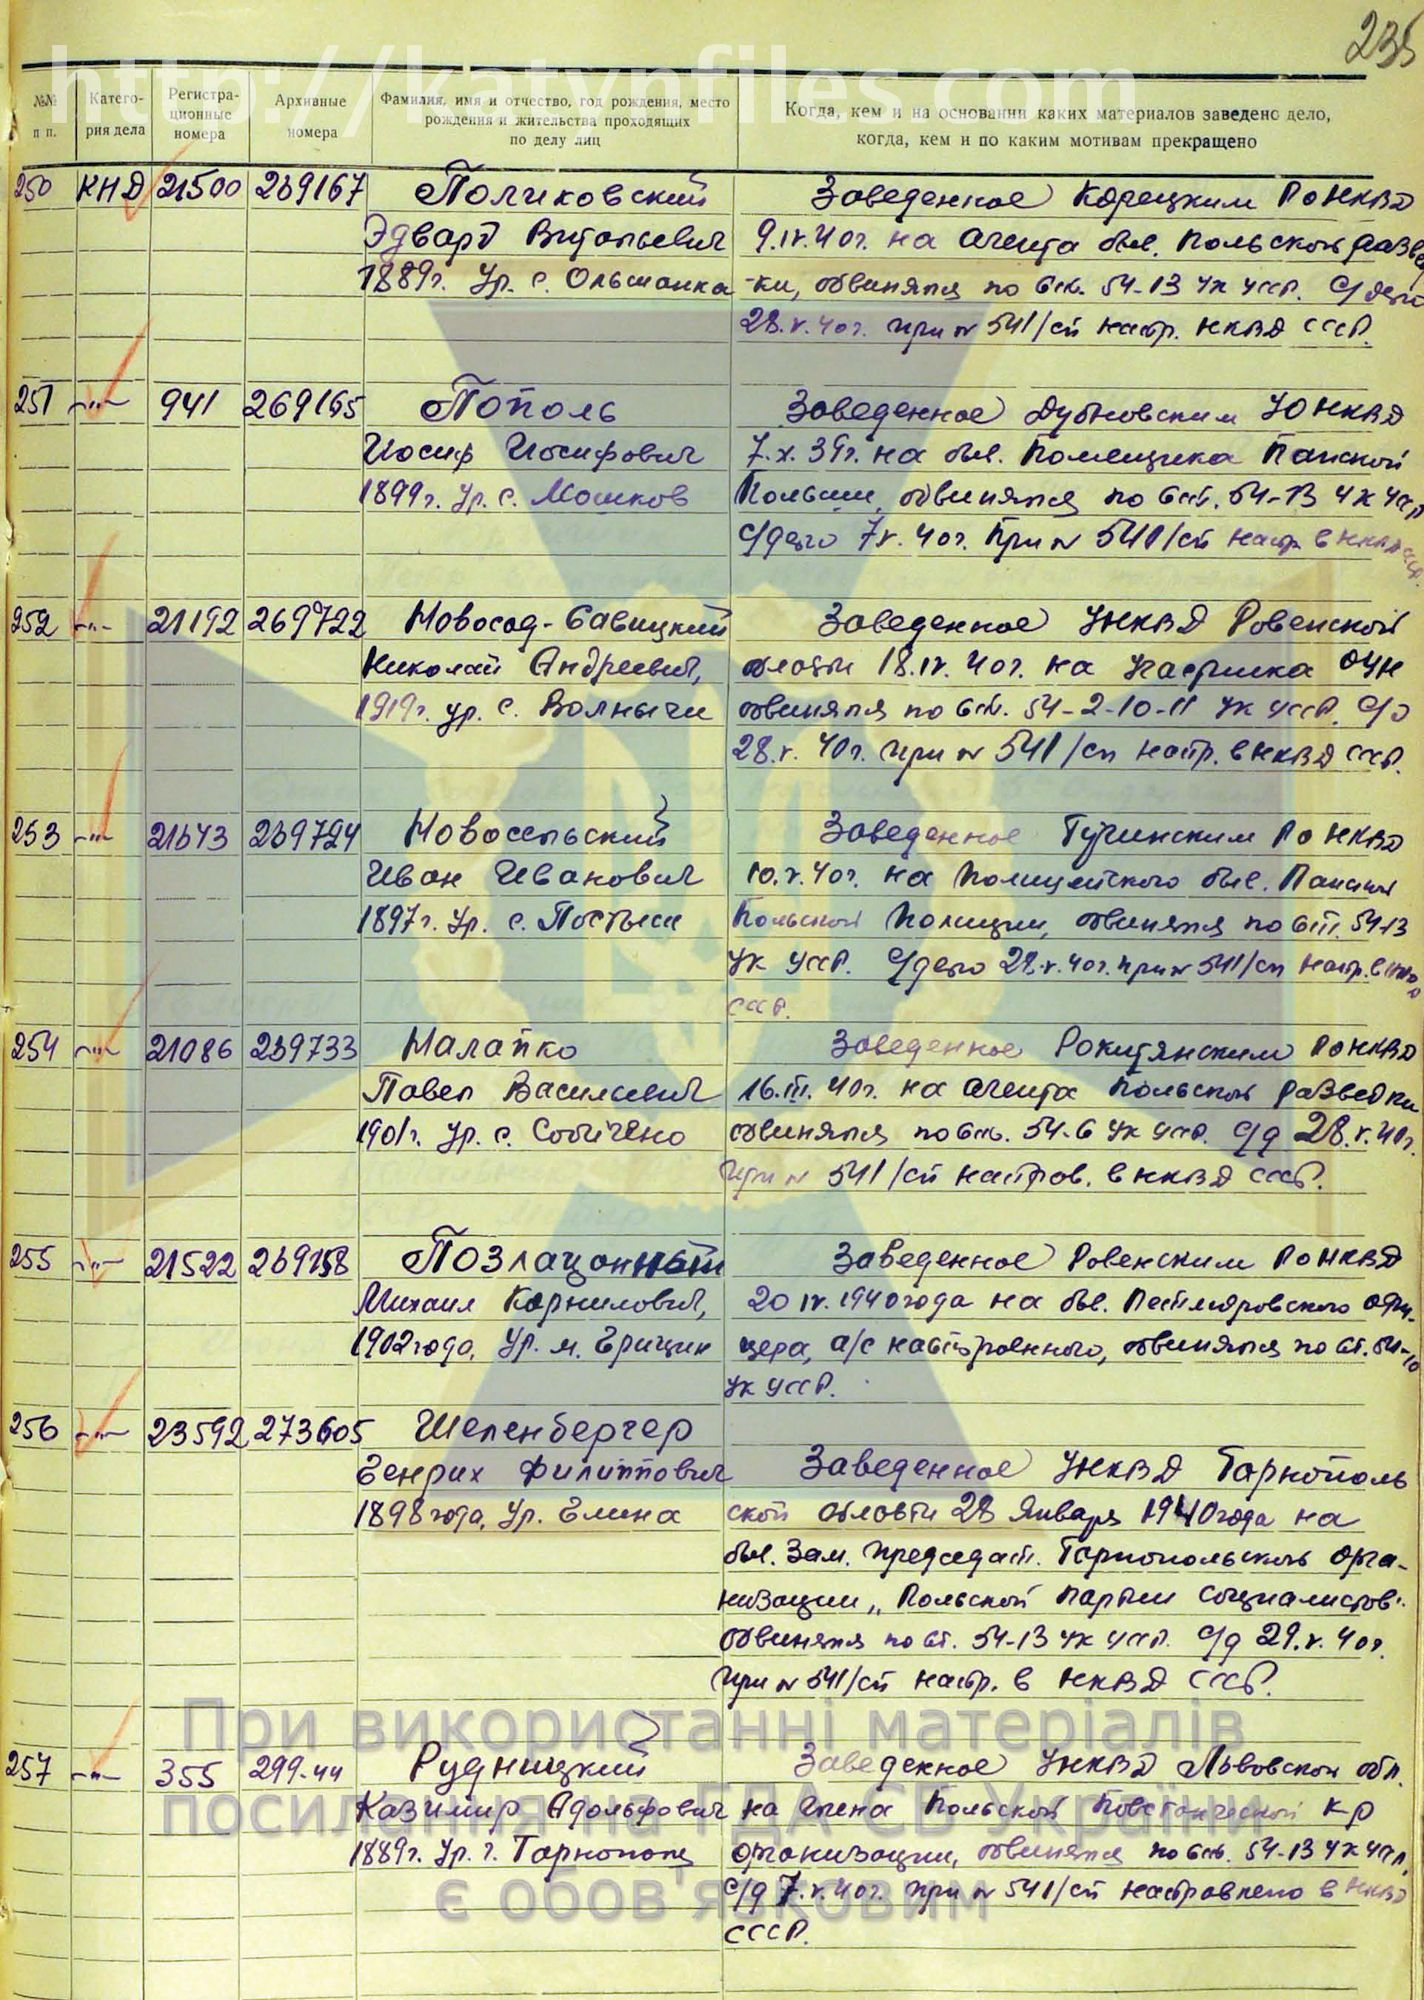 235
http://katynfiles.com
№№ п п.
Катего-
рия дела
Регистра-
ционные
номера
Архивные
номера
Фамилия, имя и отчество, год рождения, место
рождения и жительства проходящих
по делу лиц
Когда, кем и на основании каких материалов заведено дело,
когда, кем и по каким мотивам прекращено
250 КНД 21500 269167 Поличковский Заведенное Корецким РОНКВД
Эдвард Витольевич 9.IV.40г. на агента быв. Польской развед
1889г. Ур. с. Ольшанка -ки, обвинялся по ст. 54-13 УК УССР. С/дело
28.V.40г. при № 541/сп напр. НКВД СССР.
251 —"— 941 269165 Тополь Заведенное Дубновским УОНКВД
Иосиф Иосифович 7.X.39г. на быв. Помещика Панской
1899г. Ур. с. Мошков Польши, обвинялся по ст. 54-13 УК УССР
С/дело 7V.40г. При № 541/сп напр в НКВД СССР.
252 —"— 21192 269722 Новосад-Савицкий Заведенное УНКВД Ровенской
Николай Андреевич, области 18.IV.40г. на участника ОУН
1919г. ур. с. Волнычи обвинялся по ст. 54-2-10-11 УК УССР. С/д
28.V.40г. при № 541/сп напр. в НКВД СССР.
253 —"— 21643 269724 Новосельский Заведенное Тучинским РОНКВД
Иван Иванович 10.V.40г. на Полицейского быв. Панской
1897г. Ур. с. Польской полиции, обвинялся по ст. 54-13
УК УССР. С/дело 28.V.40г. при № 541/сп напр. в НКВД
СССР.
254 —"— 21086 269733 Малапко Заведенное Рокитянским РОНКВД
Павел Васильевич 16.III.40г. на агента польской разведки
1901г. Ур. с. обвинялся по ст. 54-6 УК УССР. С/д 28.V.40г.
При № 541/сп направ. в НКВД СССР.
255 —"— 21522 269758 Позлацонный Заведенное Ровенским РОНКВД
Михаил Корнилович, 20 IV.1940года на быв. Петлюровского офи-
1902года, Ур. м. цера, а/с настроенного, обвинялся по ст. 54-10
УК УССР.
256 —"— 23592 273605 Шеленбергер
Генрих Филиппович Заведенное УНКВД Тарнополь
1898года, Ур. Елина ской области 28 января 1940года на
быв. Зам. председат. Тарнопольской орга-
низации „Польской партии социалистов".
обвинялся по ст. 54-13 УК УССР. С/д 29.V.40г.
при № 541/сп напр. в НКВД СССР.
257 —"— 355 299.44 Рудницкий Заведенное УНКВД Львовской обл.
Казимир Адольфович на члена Польской повстанческой к-р
1889г. Ур. г. Тарнополя организации, обвинялся по ст. 54-13 УК УССР,
С/д 7.V.40г. При № 541/сп направлено в НКВД
СССР.
При використанні матеріалів
посилання на ГДА СБ України
є обов'язковим